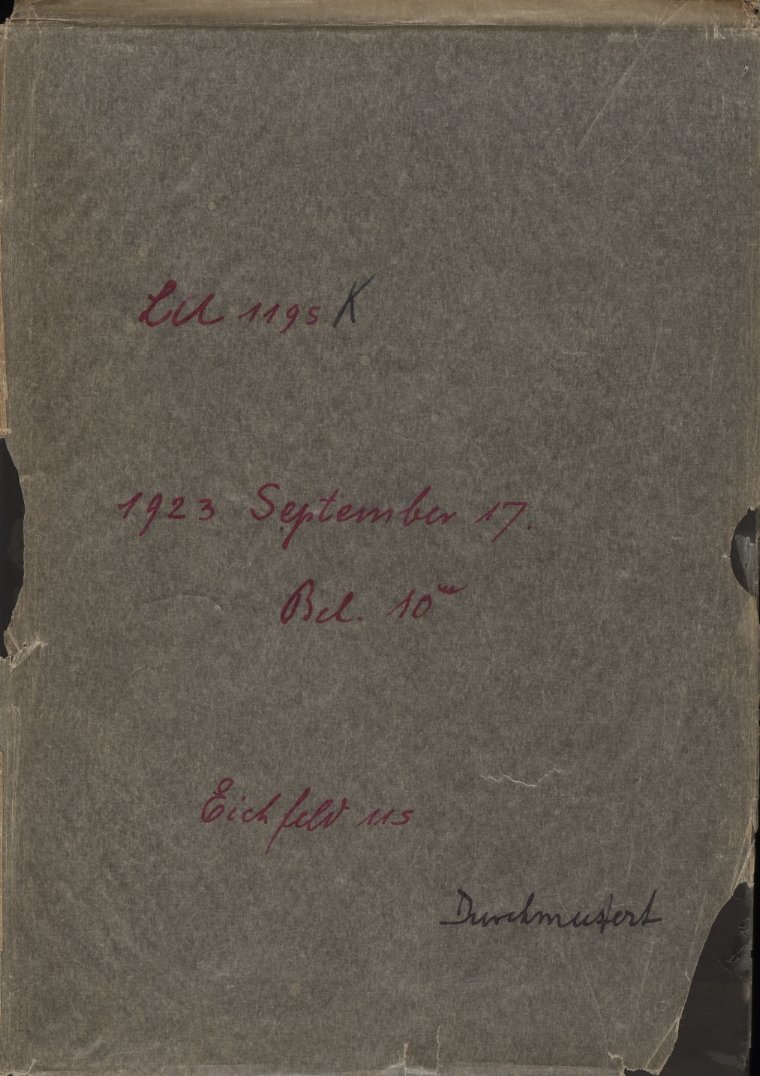 Ld 1195 K
1923 September 17.
Bel. 10ᵐ
Eichfeld 115
Durchmustert